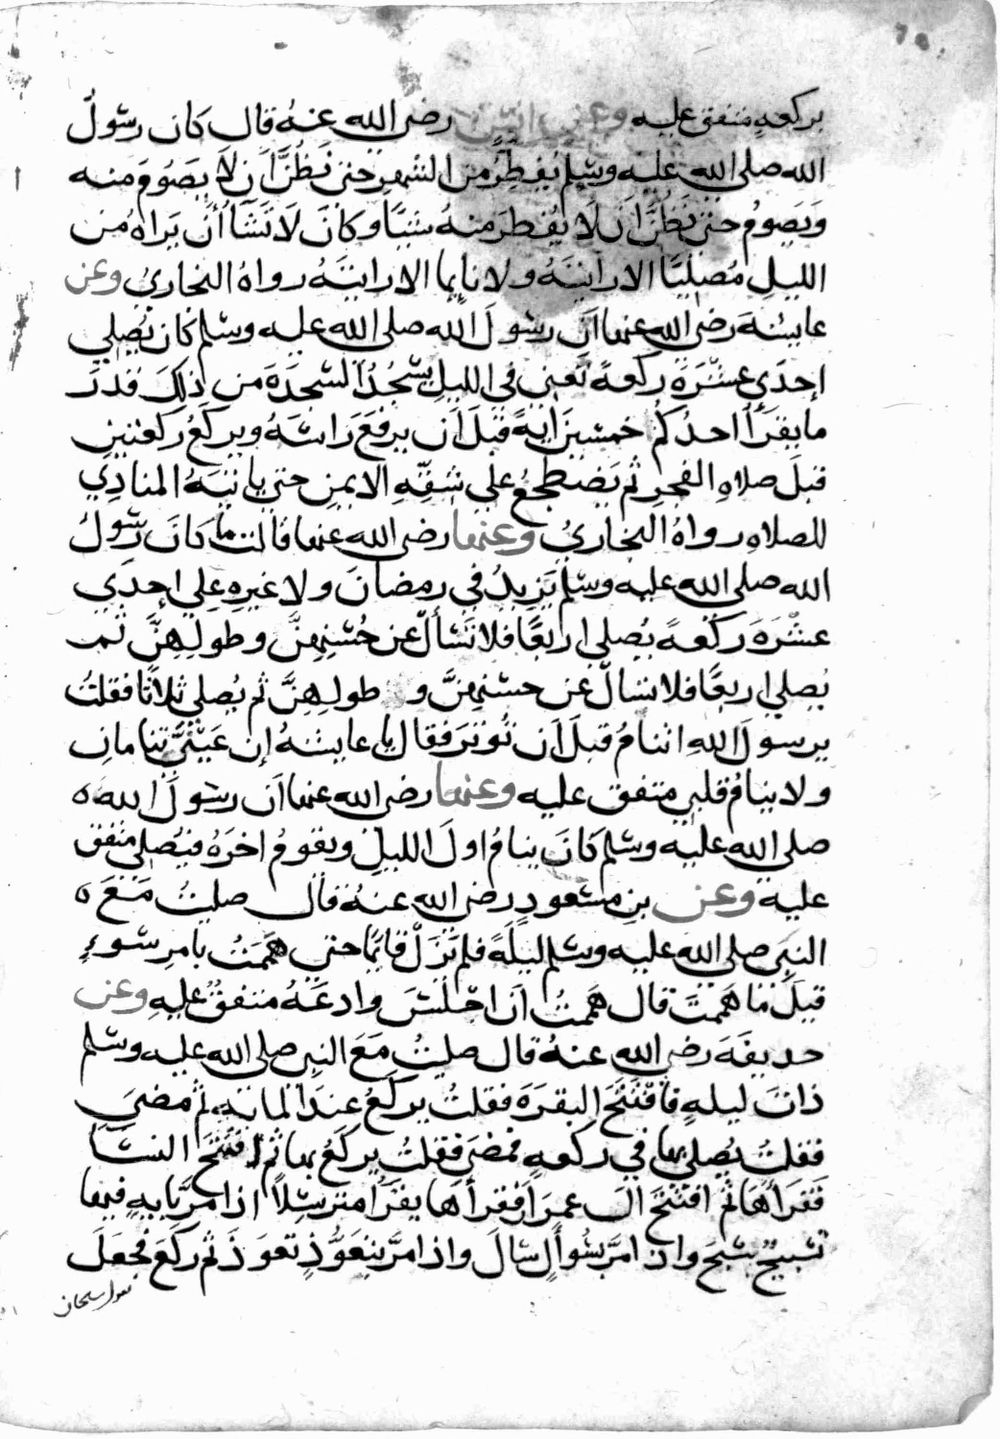 بركعةٍ متفق عليه وعن انس رضي الله عنهُ قال كان رسُولُ
الله صلى الله عليه وسلم يُفطِرُ من الشهر حتى نَظُنَّ اَن لاَ يصَوُمَ منه
وَيصومُ حتى نَظُنَّ اَن لَا يفطرَ منهُ شيئًا وكانَ لَا تشَآءُ أن تَراهُ من
الليلِ مُصَليًا الا رايتَهُ ولا نايما الا رايتَهُ رواهُ البخاريُ وعن
عايشَةَ رضي الله عنها اَن رسُولَ الله صلى الله عليه وسلم كان يُصلي
إحدَي عشْرَةَ ركعةً تَعني في الليلِ يسْجُدُ السَّجدَةَ من ذلِكَ قَدرَ
ما يقرَأُ احدُكمُ خمسينَ ايةً قَبلَ اَن يرفَعَ رَاسَهُ ويركَعُ ركعتين
قبلَ صلاةِ الفجرِ ثم يَضطجعُ على شقِّهِ الايمنِ حتى ياتيَهُ المنادِي
للصلاةِ رواهُ البخاريُ وعنها رضي الله عنها قالت ما كانَ رسُولُ
الله صلى الله عليه وسلم يَزيدُ في رمضانَ ولا غيرِهِ على احدَي
عشْرَةَ ركعةً يُصلي اربعًا فلا تَسْألْ عن حُسْنِهِنَّ وطولِهِنَّ ثم
يُصلي اربعًا فلا تسَالْ عن حسْنِهنَّ و طولِهِنَّ ثم يُصلي ثلاثًا فقلتُ
يرسولَ اللهِ اتنامُ قبلَ اَن تُوترَ فقال يا عايشَهُ إن عَيْنَيَّ تنامانِ
ولا ينامُ قلبي متفق عليه وعنها رضي الله عنها اَن رسُولَ الله ه
صلى الله عليه وسلم كَانَ ينامُ اولَ الليلِ ويقومُ اخرَهُ فيُصلي متفق
عليه وعن بن مسْعودٍ رضي الله عنهُ قال صليتُ مَعَ ه
النبيِّ صلى الله عليه وسلم ليلَةً فلم يَزَلْ قايمًا حتى هَمَمتُ بامرِ سُوءٍ
قيلَ ما هَمَمتَ قال هَمَمتُ اَن اَجْلسَ وادعَهُ متفقٌ عليهِ وعن
حديفَةَ رضي الله عنهُ قال صليتُ مَعَ النبيِ صلى الله عليه وسلم
ذاتَ ليلهٍ فَافْتَتَحَ البقرَةَ فقلتُ يركَعُ عندَ المايةِ ثم مضَي
فقلتُ يُصلي بها في ركعهٍ فمضَي فقلتُ يركَعُ بها ثم افتتَحَ النسَآءَ
فَقرَأَهَا ثم افتتَحَ الَ عمرَان فقرأهَا يقرَا مترسِّلاً اذا مرَّ بايهٍ فيها
تسبيحٌ سَبحَ واذا مرَّ بسُوَالٍ سَالَ واذا مرَّ بتعَوُّذٍ تعوذَ ثم ركَعَ فجعَلَ
يقول سبحان